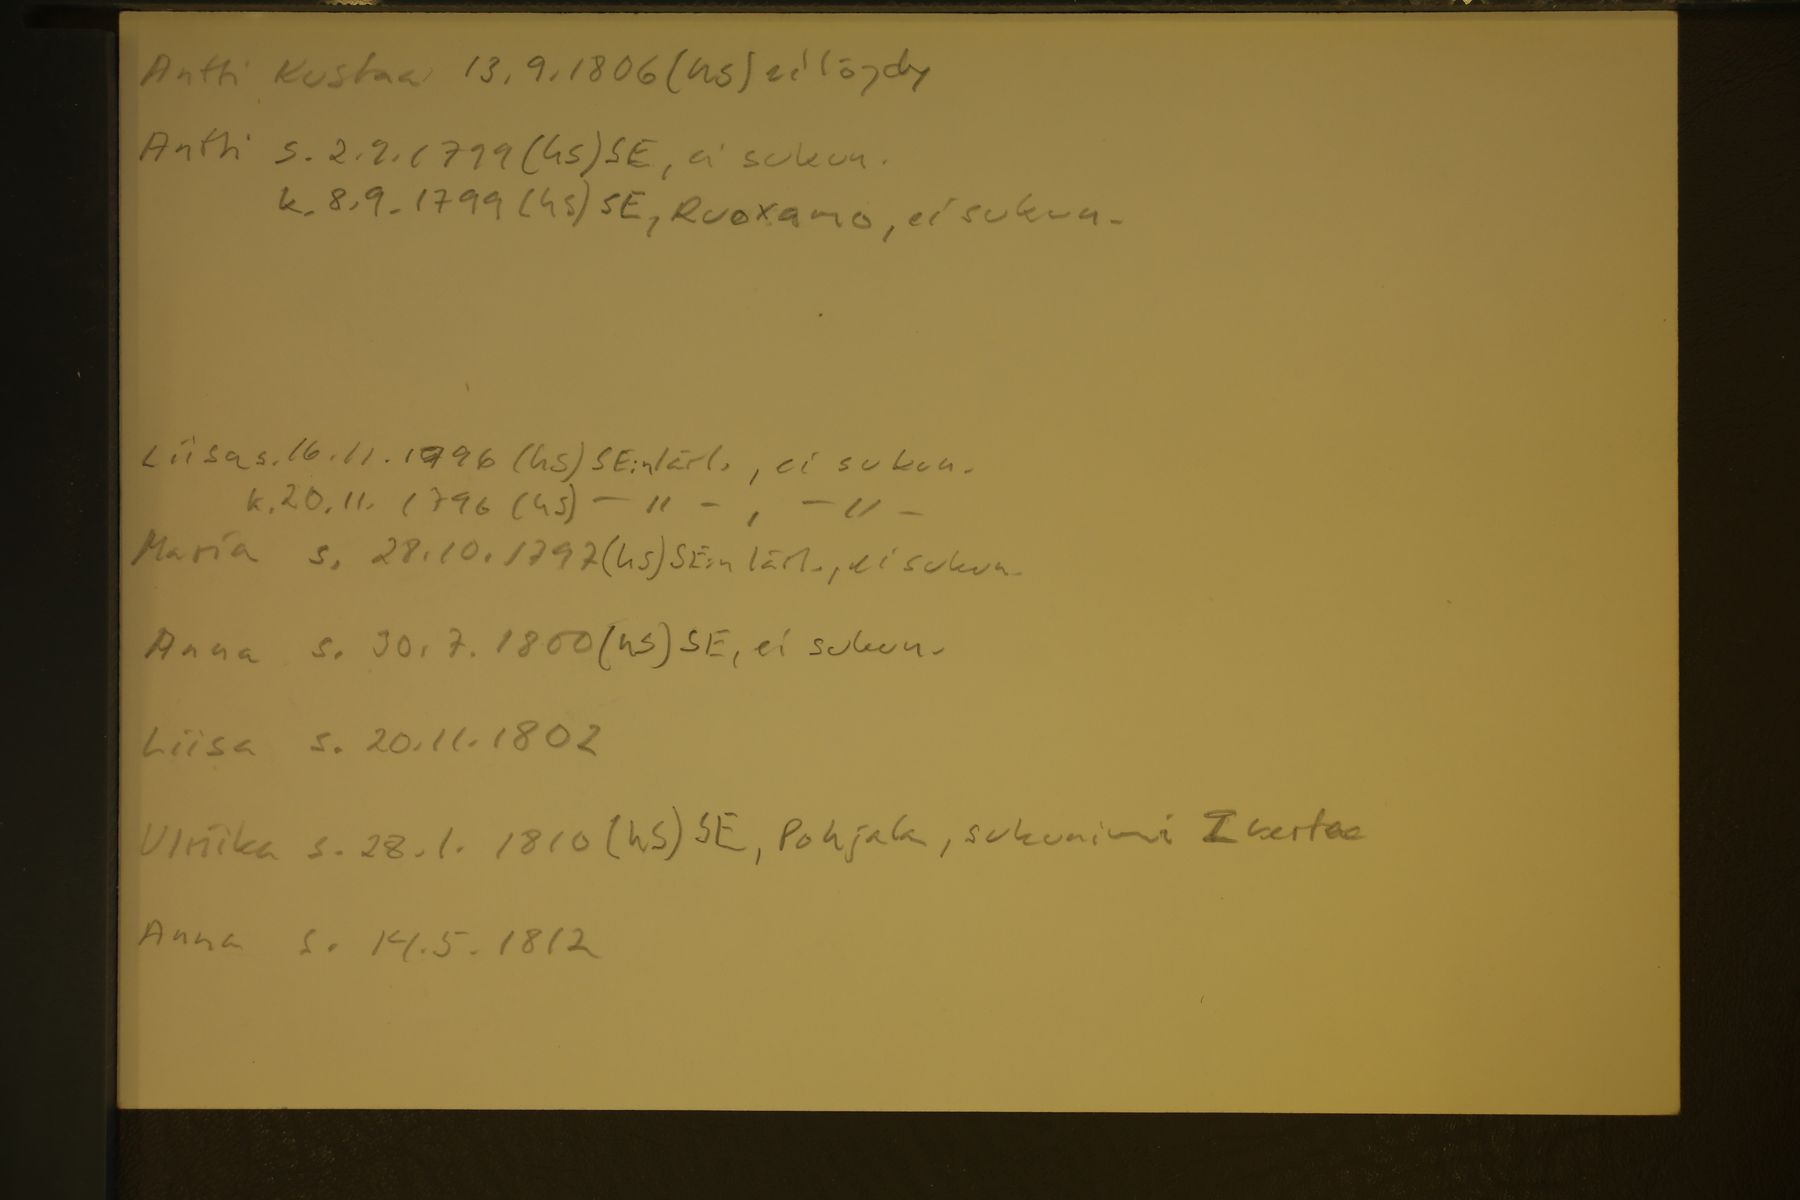 Antti Kustaa 13.9.1806 (hs) ei löydy
Antti s. 2.9.1799 (hs) SE, ei sukun.
k. 8.9.1799 (hs) SE, Ruoxamo, ei sukun.
Liisa s. 16.11.1796 (hs) SE:n lärl., ei sukun.
k. 20.11.1796 (hs) — " —, — " —
Maria s. 28.10.1797 (hs) SE:n lärl., ei sukun.
Anna s. 30.7.1800 (hs) SE, ei sukun.
Liisa s. 20.11.1802
Ulriika s. 28.1.1810 (hs) SE, Pohjala, sukunimi I kertaa
Anna s. 14.5.1812